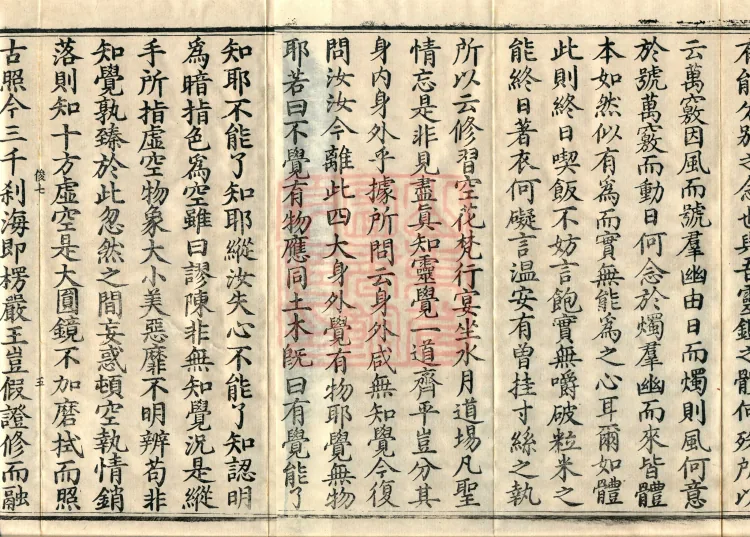 云萬竅因風而號羣幽由日而燭則風何意
於號萬竅而動日何念於燭羣幽而來皆體
本如然似有爲而實無能爲之心耳爾如體
此則終日喫飯不妨言飽實無嚼破粒米之
能終日著衣何礙言温安有曾挂寸絲之執
所以云修習空花梵行宴坐水月道場凡聖
情忘是非見盡眞知靈覺一道齊平豈分其
身内身外乎據所問云身外咸無知覺今復
問汝汝今離此四大身外覺有物耶覺無物
耶若曰不覺有物應同土木旣曰有覺能了
知耶不能了知耶縱汝失心不能了知認明
爲暗指色爲空雖曰謬陳非無知覺況是縱
手所指虛空物象大小美惡靡不明辨苟非
知覺孰臻於此忽然之間妄惑頓空執情銷
落則知十方虛空是大圓鏡不加磨拭而照
俊七 五
古照今三千刹海即楞嚴王豈假證修而融